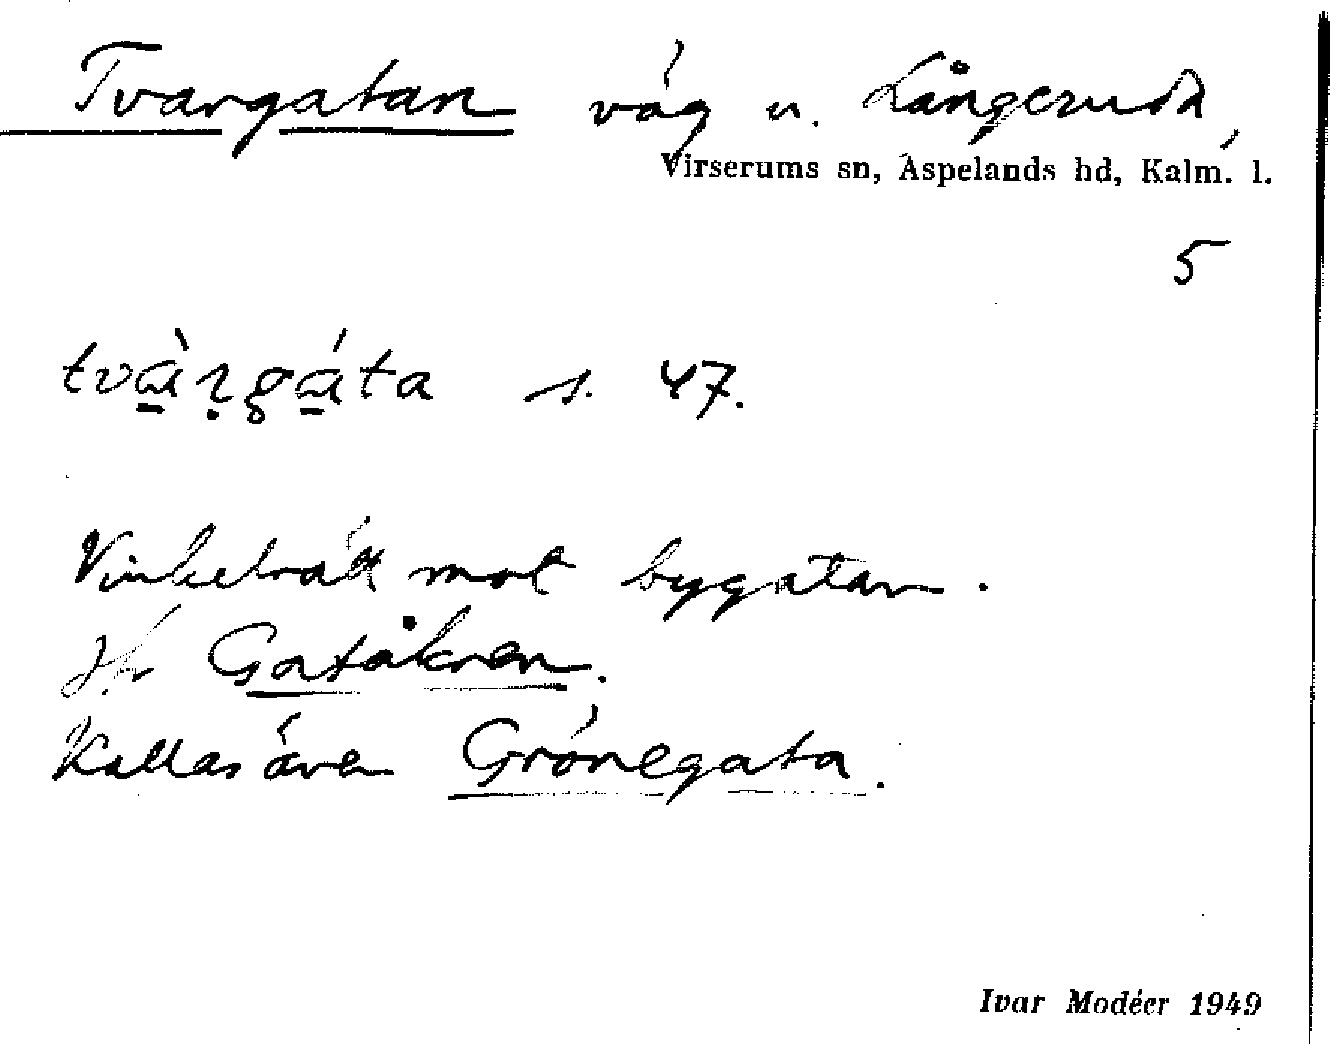 Tvargatan väg u. Långeruda,
Virserums sn, Aspelands hd, Kalm. l.
5
tvàrgáta s. 47.
Vinkelrätt mot bygatan.
Jfr Gatåkren.
Kallas även Grönegata.
Ivar Modéer 1949